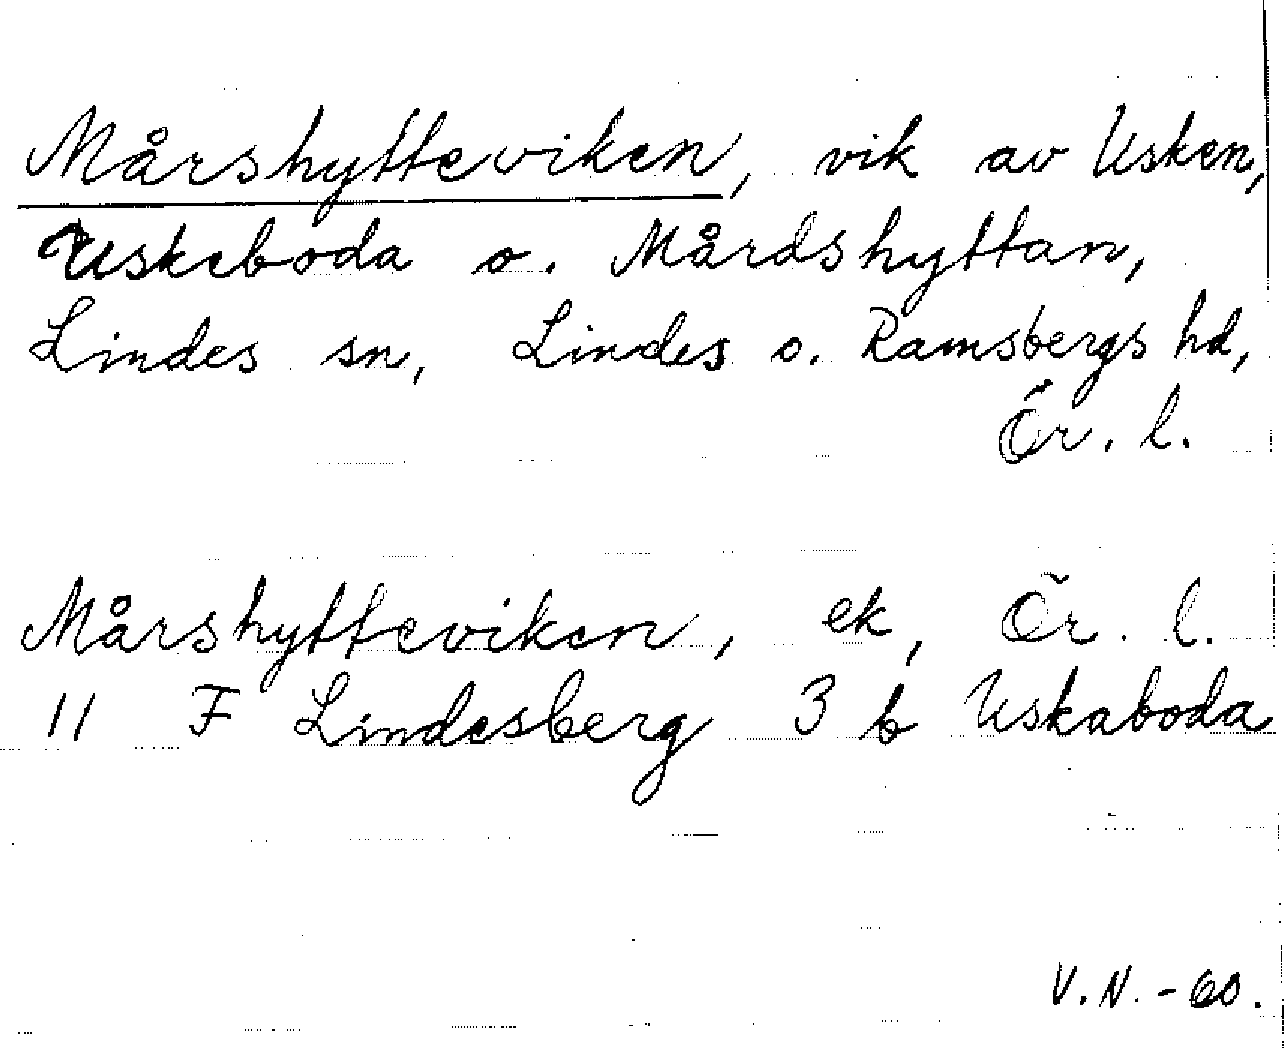 Mårshytteviken, vik av Usken,
Uskeboda o. Mårdshyttan,
Lindes sn, Lindes o. Ramsbergs hd,
Ör. l.
Mårshytteviken, ek, Ör. l.
11 F Lindesberg 3 b Uskaboda
V.N. - 60.